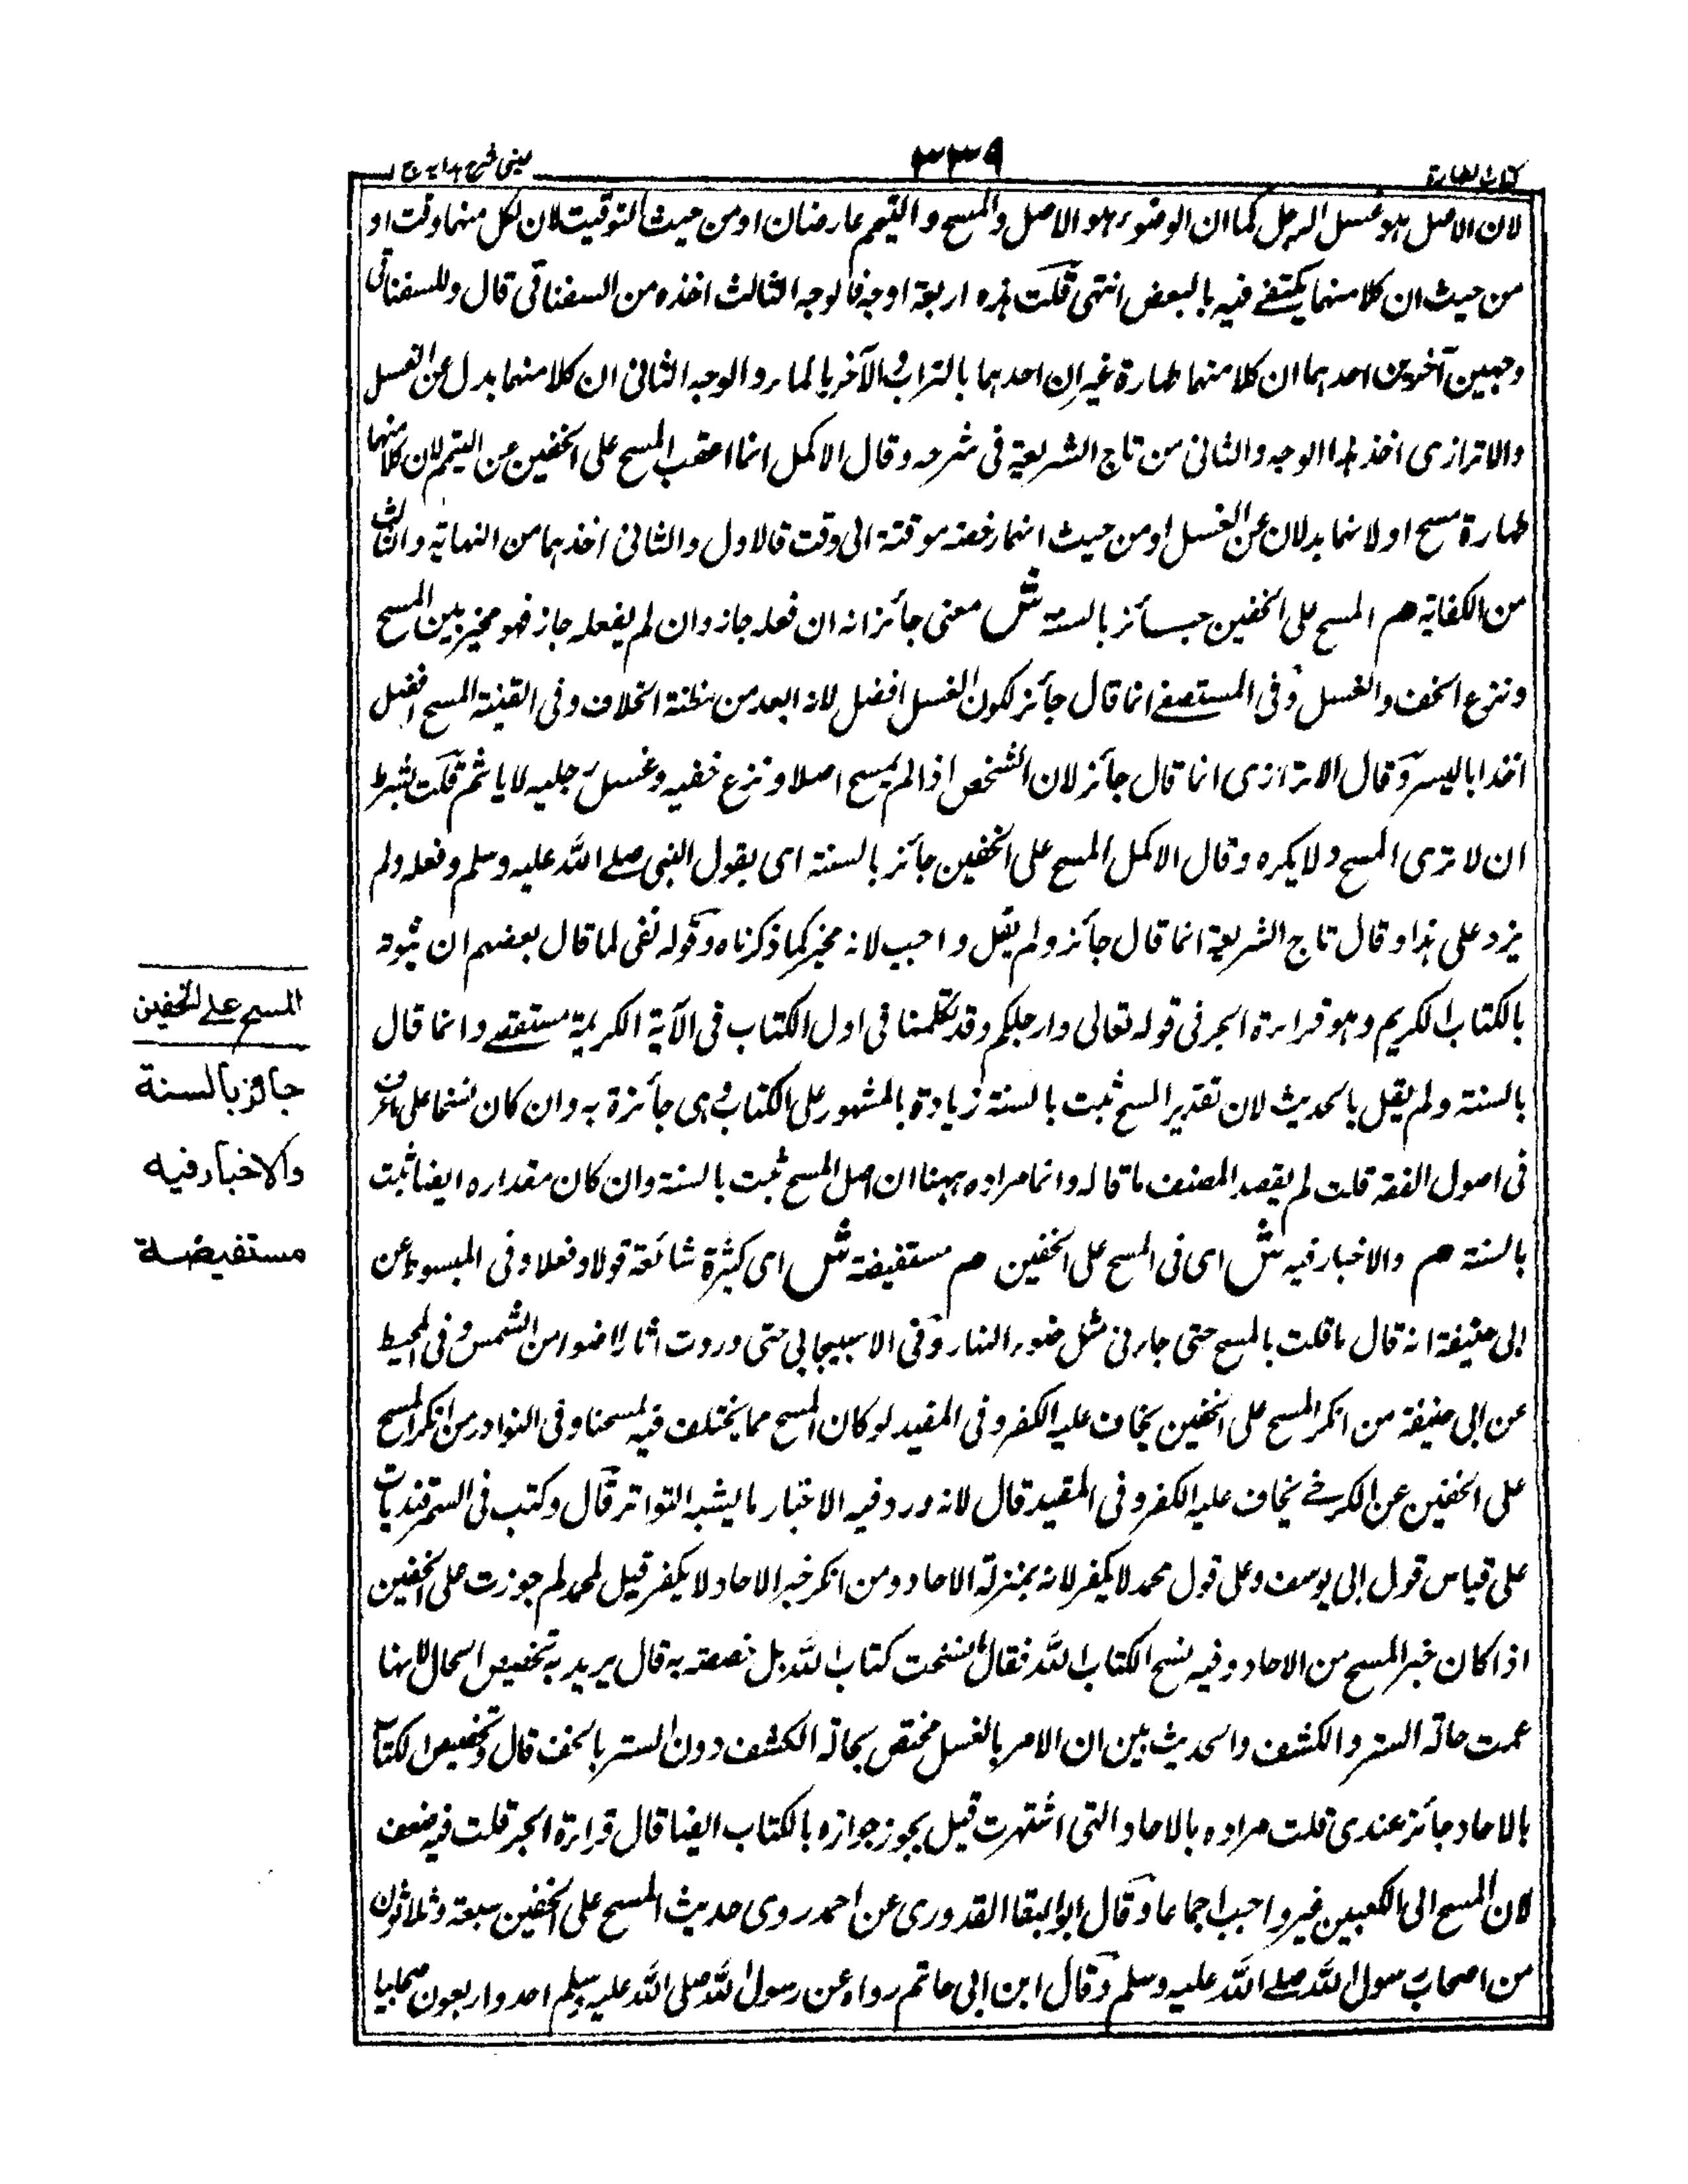 كتاب الطهارة
٣٣٩
عینی شرح ہدایہ ج ۱
لان الاصل ہو غسل الرجل كما ان الوضوء ہو الاصل والمسح والتیمم عارضان او من حیث التوقیت لان لكل منہما وقت او
من حیث ان كلا منہما یكتفے فیہ بالبعض انتہی قلت ہذہ اربعة اوجہ فالوجہ الثالث اخذہ من السغناقی قال وللسغناقی
وجہین آخرین احدہما ان كلا منہما طہارة غیر ان احدہما بالتراب والآخر بالماء والوجہ الثانی ان كلا منہما بدل عن الغسل
والاترازی اخذ ہذا الوجہ والثانی من تاج الشریعة فی شرحہ وقال الاكمل انما اعقب المسح علی الخفین عن التیمم لان كلا منہما
طہارة مسح او لانہما بدلان عن الغسل او من حیث انہما رخصة موقتة الی وقت فالاول والثانی اخذہما من النہایة والثالث
من الكفایة ھم المسح علی الخفین جائز بالسنة ش معنی جائز انہ ان فعلہ جاز وان لم یفعلہ جاز فہو مخیر بین المسح
ونزع الخف والغسل وفی المستصفے انما قال جائز لكون الغسل افضل لانہ ابعد من مظنة الخلاف وفی القنیة المسح افضل
اخذا بالیسر وقال الاترازی انما قال جائز لان الشخص اذا لم یمسح اصلا ونزع خفیہ وغسل رجلیہ لا یاثم قلت بشرط
ان لا تری المسح ولا یكرہ وقال الاكمل المسح علی الخفین جائز بالسنة ای بقول النبی صلے اللہ علیہ وسلم وفعلہ ولم
یزد علی ہذا وقال تاج الشریعة انما قال جائز ولم یقل واجب لانہ مخیر كما ذكرناہ وقولہ نفی لما قال بعضہم ان ثبوتہ
بالكتاب الكریم وہو قراءة الجر فی قولہ تعالی وارجلكم وقد تكلمنا فی اول الكتاب فی الآیة الكریمة مستقصے وانما قال
بالسنة ولم یقل بالحدیث لان تقدیر المسح ثبت بالسنة زیادة بالمشہور علی الكتاب وہی جائزة بہ وان كان نسخا علی ما عرف
فی اصول الفقہ قلت لم یقصد المصنف ما قالہ وانما مرادہ ہہنا ان اصل المسح ثبت بالسنة وان كان مقدارہ ایضا ثبت
بالسنة ھم والاخبار فیہ ش ای فی المسح علی الخفین ھم مستفیضة ش ای كثیرة شائعة قولا وفعلا وفی المبسوط عن
ابی حنیفة انہ قال ما قلت بالمسح حتی جاءنی مثل ضوء النہار وفی الاسبیجابی حتی وردت آثار اضوا من الشمس وفی المحیط
عن ابی حنیفة من انكر المسح علی الخفین یخاف علیہ الكفر وفی المفید لو كان المسح مما یختلف فیہ لمسحنا وفی النوادر من انكر المسح
علی الخفین عن الكرخے یخاف علیہ الكفر وفی المفید قال لانہ ورد فیہ الاخبار ما یشبہ التواتر قال وكتب فی السمرقندیات
علی قیاس قول ابی یوسف وعلی قول محمد لا یكفر لانہ بمنزلة الاحاد ومن انكر خبر الاحاد لا یكفر قیل لمحمد لم جوزت علی الخفین
اذا كان خبر المسح من الاحاد وفیہ نسخ الكتاب للہ فقال ما نسخت كتاب اللہ بل خصصتہ بہ قال یرید بہ تخصیص الحال لانہا
عمت حالة الستر والكشف والحدیث بین ان الامر بالغسل مختص بحالة الكشف دون الستر بالخف قال وتخصیص الكتاب
بالاحاد جائز عندی قلت مرادہ بالاحاد التی اشتہرت قیل یجوز جوازہ بالكتاب ایضا قال قراءة الجر قلت فیہ ضعف
لان المسح الی الكعبین غیر واجب اجماعا وقال ابو البقا القدوری عن احمد روی حدیث المسح علی الخفین سبعة وثلاثون
من اصحاب رسول اللہ صلے اللہ علیہ وسلم وقال ابن ابی حاتم رواہ عن رسول اللہ صلی اللہ علیہ وسلم احد واربعون صحابیا
المسح علے الخفین
جائز بالسنة
والاخبار فيه
مستفيضة